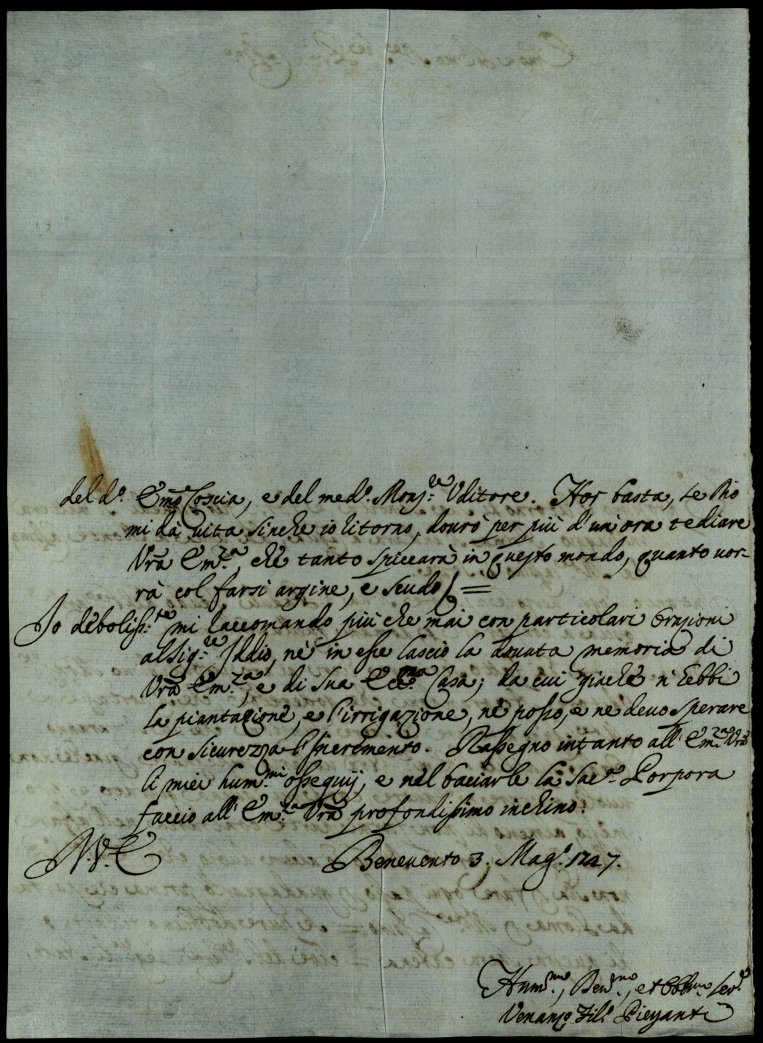 del d.º Emo Coscia, e del med.º Mons.re Uditore. Hor basta, se Dio
mi dà vita sinche io ritorno, dourò per più d'un'ora tediare
Vrã Em.za, chè tanto spiccarà in questo mondo, quanto vor-
rà col farsi argine, e scudo
Io debolissi.te mi raccomando più che mai con particolari Orazioni
al Sig.re Iddio, nè in esse lascio la douuta memoria di
Vrã Em.za, e di Sua Ecc.ma Casa; da cui giachè n'hebbi
la piantagione, e l'irrigazione, nè posso, e nè deuo sperare
con sicurezza l'Incremento. Rassegno intanto all'Em.za Vrã
li miei hum.mi ossequij, e nel baciarle la Sac.ra Porpora
faccio all'Em.za Vrã profondissimo inchino.
Beneuento 3. Mag.º 1727.
Hum.mo, Deu.mo, et Obb.mo Ser.e
Fil.º Pieganti